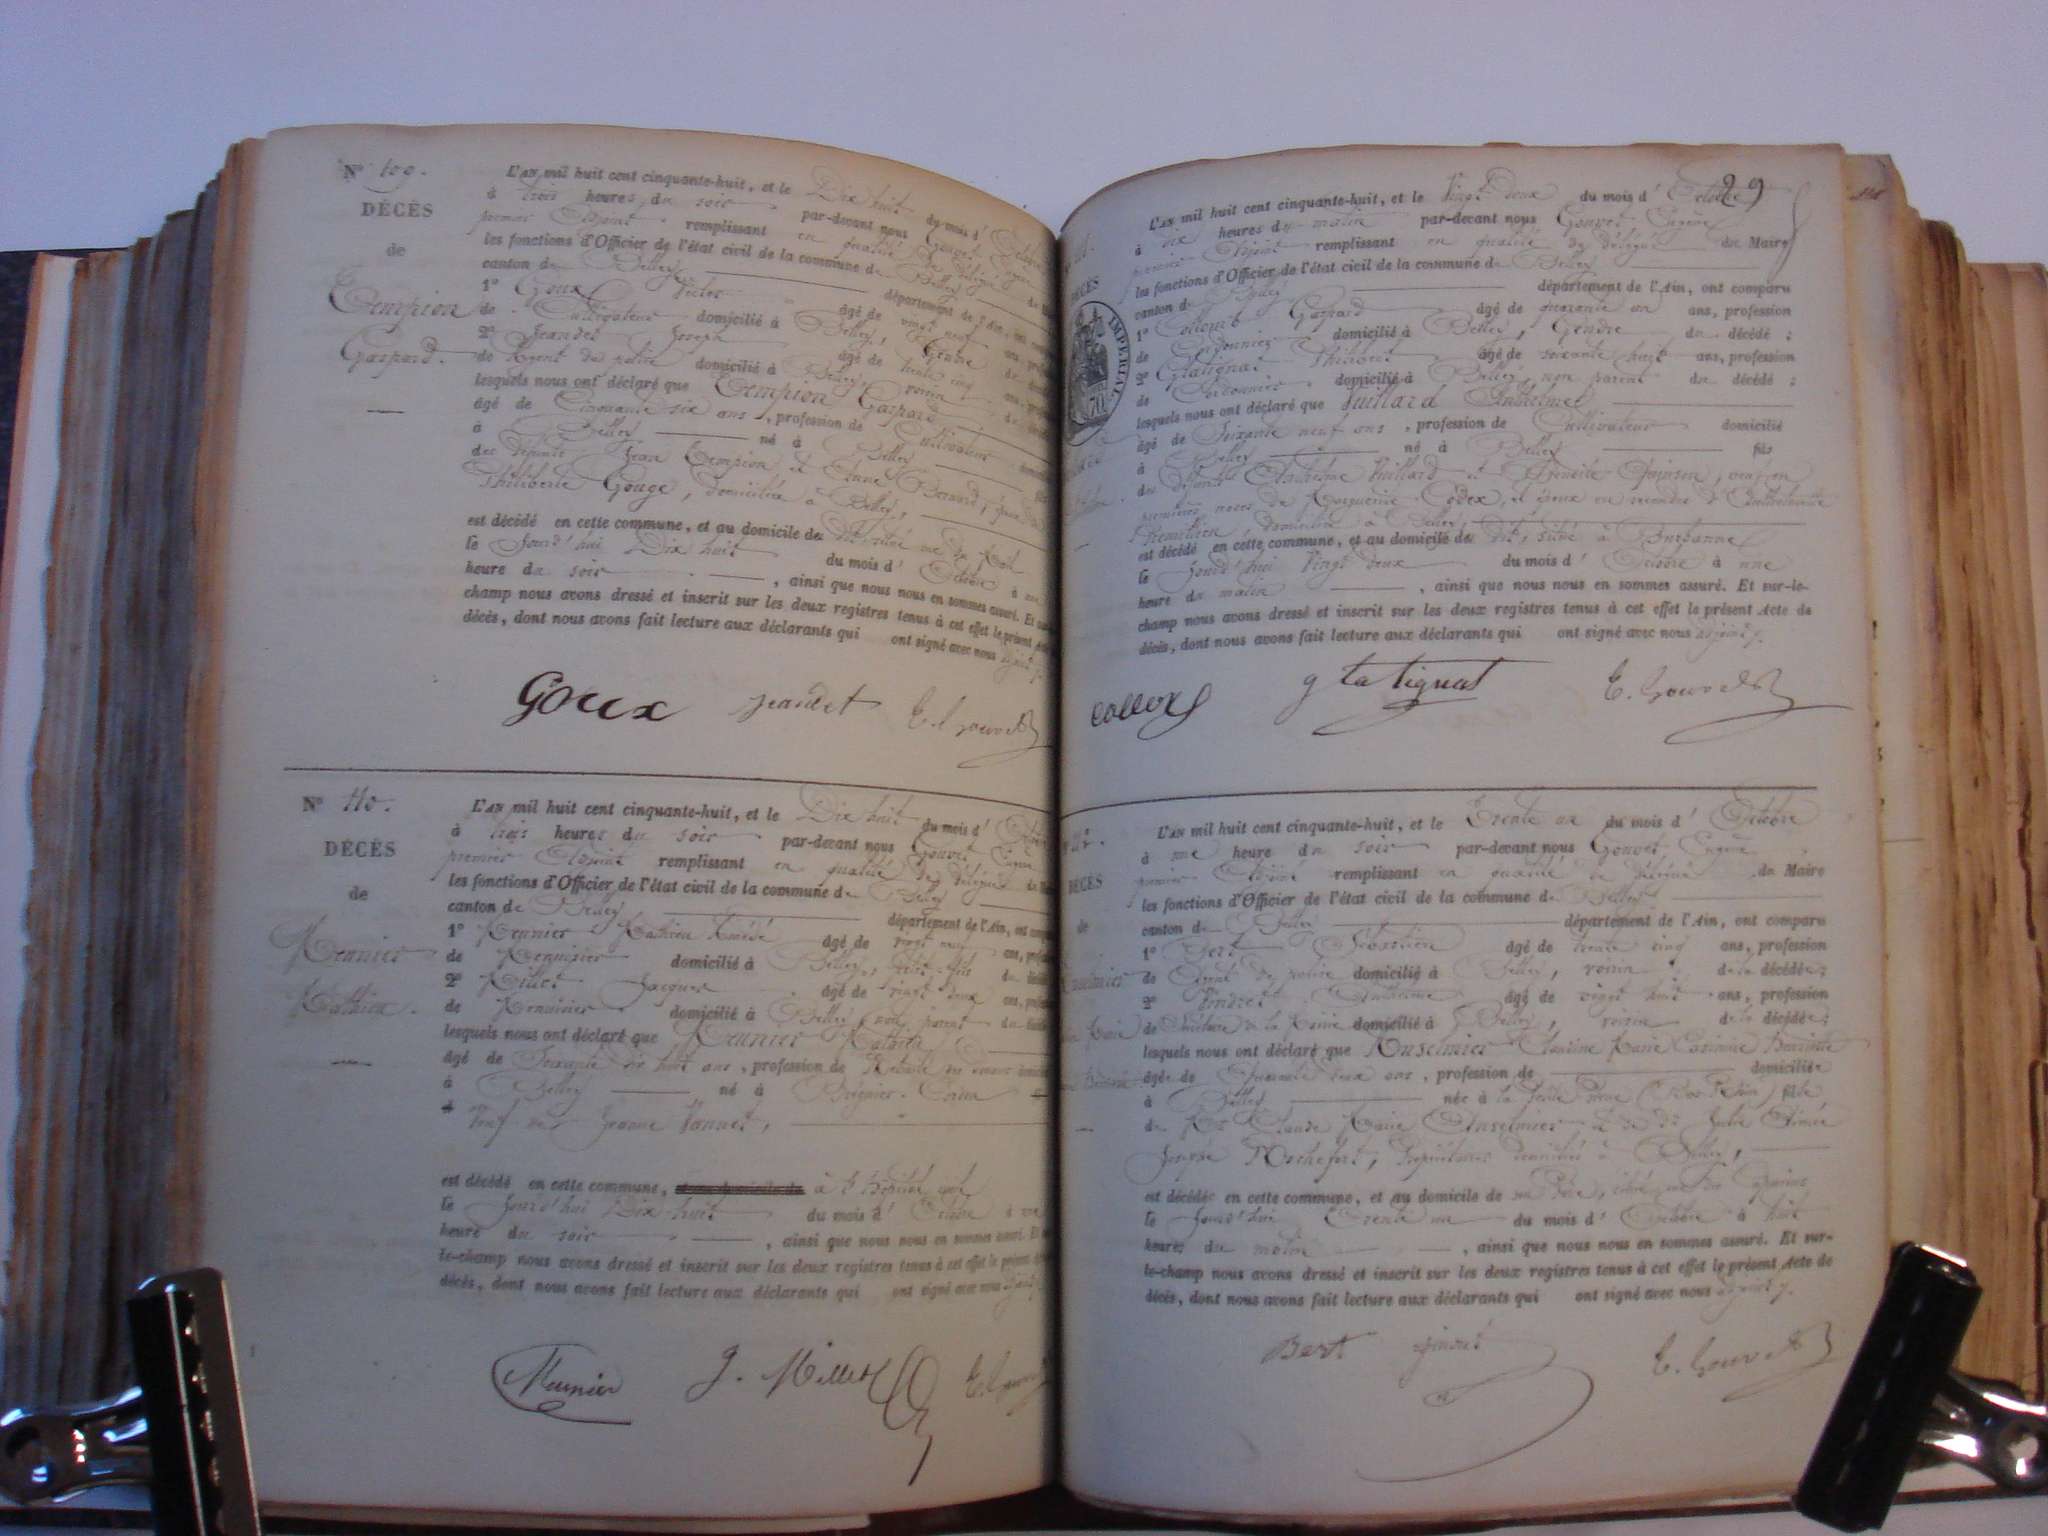 N° 109.
DÉCÈS
de
Tempion
Gaspard.
L'AN mil huit cent cinquante-huit, et le Dix huit du mois d'
à trois heures du soir par-devant nous Gouvet
premier Adjoint remplissant en qualité de délégué
les fonctions d'Officier de l'état civil de la commune de Belley
canton de Belley département de l'Ain, ont
1° Goux Victor âgé de vingt neuf ans
de Cultivateur domicilié à Belley, Gendre
2° Jeandet Joseph âgé de trente cinq ans
de Agent de police domicilié à Belley, voisin
lesquels nous ont déclaré que Tempion Gaspard
âgé de Cinquante six ans, profession de Cultivateur
à Belley né à Belley
des défunts Jean Tempion et Anne Bernard,
Philiberte Gouge, domiciliée à Belley,
est décédé en cette commune, et au domicile de
le Jourd'hui Dix huit du mois d' Octobre à
heure du soir, ainsi que nous nous en sommes assuré. Et
champ nous avons dressé et inscrit sur les deux registres tenus à cet effet le présent
décès, dont nous avons fait lecture aux déclarants qui ont signé avec nous adjoint
Goux Jeandet E. Gouvet
N° 110.
DÉCÈS
de
Meunier
Mathieu.
L'AN mil huit cent cinquante-huit, et le Dix huit du mois d'
à trois heures du soir par-devant nous Gouvet Eugène
premier Adjoint remplissant en qualité de délégué du
les fonctions d'Officier de l'état civil de la commune de Belley
canton de Belley département de l'Ain, ont
1° Meunier Mathieu Amédé âgé de vingt neuf ans,
de Menuisier domicilié à Belley, petit fils du
2° Millet Jacques âgé de vingt deux ans,
de Menuisier domicilié à Belley, non parent du
lesquels nous ont déclaré que Meunier Mathieu
âgé de Soixante dix huit ans, profession de
à Belley né à Brégnier-Cordon
Veuf de Jeanne Vonnet,
est décédé en cette commune, et au domicile de à l'hôpital
le Jourd'hui Dix huit du mois d' Octobre à
heure du soir, ainsi que nous nous en sommes assuré. Et
le-champ nous avons dressé et inscrit sur les deux registres tenus à cet effet le présent
décès, dont nous avons fait lecture aux déclarants qui ont signé avec nous
Meunier J. Millet E. Gouvet
29
DÉCÈS
IMPÉRIAL
70
L'AN mil huit cent cinquante-huit, et le Vingt Deux du mois d' Octobre
à dix heures du matin par-devant nous Gouvet Eugène
premier Adjoint remplissant en qualité de délégué du Maire
les fonctions d'Officier de l'état civil de la commune de Belley
canton de Belley département de l'Ain, ont comparu
1° Collomb Gaspard âgé de quarante un ans, profession
de Cordonnier domicilié à Belley, Gendre du décédé;
2° Glatignat Philibert âgé de soixante huit ans, profession
de Cordonnier domicilié à Belley, non parent du décédé;
lesquels nous ont déclaré que Vuillard Anthelme
âgé de Soixante neuf ans, profession de Cultivateur domicilié
à Belley né à Belley fils
des défunts Anthelme Vuillard et veuf en
premières noces de Marguerite et époux en secondes d'
domiciliée à Belley,
est décédé en cette commune, et au domicile de dit, situé à
le Jourd'hui Vingt deux du mois d' Octobre à une
heure du matin, ainsi que nous nous en sommes assuré. Et sur-le-
champ nous avons dressé et inscrit sur les deux registres tenus à cet effet le présent Acte de
décès, dont nous avons fait lecture aux déclarants qui ont signé avec nous adjoint
glatignat E. Gouvet
DÉCÈS
de
L'AN mil huit cent cinquante-huit, et le Trente un du mois d' Octobre
à une heure du soir par-devant nous Gouvet Eugène
premier Adjoint remplissant en qualité de délégué du Maire
les fonctions d'Officier de l'état civil de la commune de Belley
canton de Belley département de l'Ain, ont comparu
1° Bert Sébastien âgé de trente cinq ans, profession
de Agent de police domicilié à Belley, voisin de la décédée;
2° Anthelme âgé de vingt huit ans, profession
de Secrétaire de la Mairie domicilié à Belley, voisin de la décédée;
lesquels nous ont déclaré que Anselmier Marie
âgée de deux ans, profession de domiciliée
à Belley née à la fille
de Mr Claude Marie Anselmier et de de Julie Aimée
Rochefort, Propriétaires domiciliés à Belley,
est décédée en cette commune, et au domicile de son Père,
le Jourd'hui Trente un du mois d' Octobre à huit
heures du matin, ainsi que nous nous en sommes assuré. Et sur-
le-champ nous avons dressé et inscrit sur les deux registres tenus à cet effet le présent Acte de
décès, dont nous avons fait lecture aux déclarants qui ont signé avec nous adjoint
Bert E. Gouvet